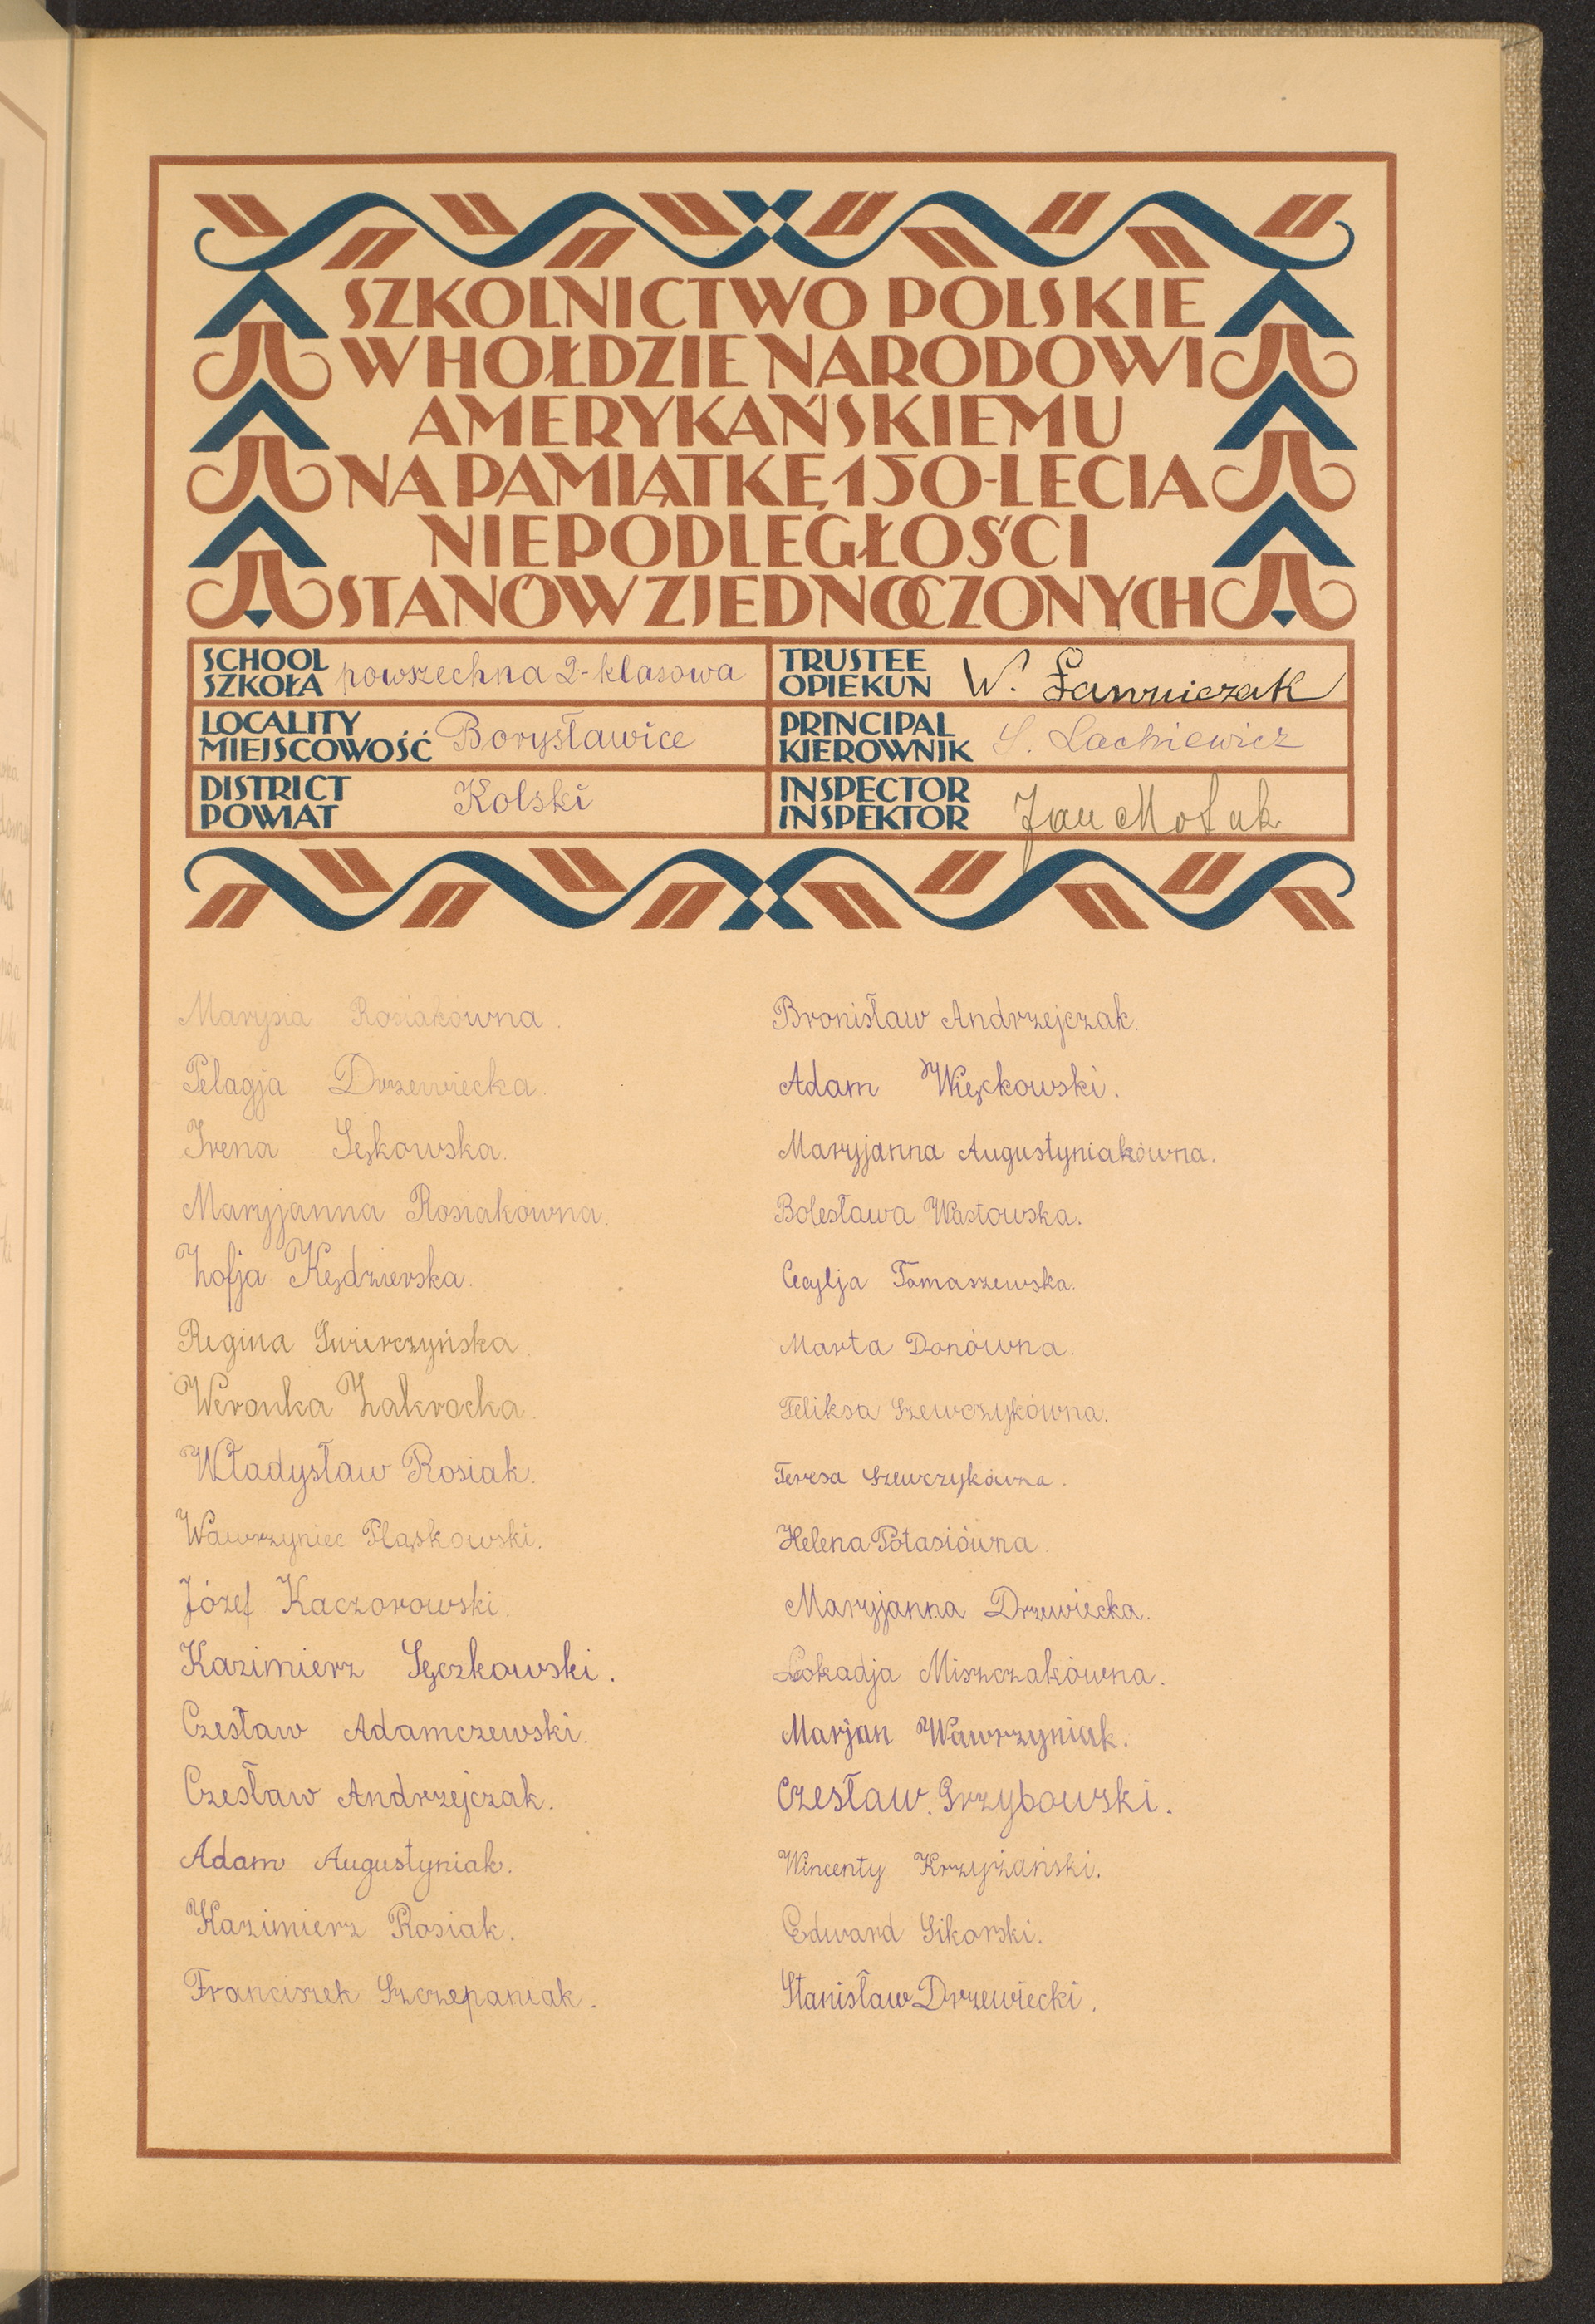 SZKOLNICTWO POLSKIE
W HOŁDZIE NARODOWI
AMERYKAŃSKIEMU
NA PAMIĄTKĘ 150-LECIA
NIEPODLEGŁOŚCI
STANÓW ZJEDNOCZONYCH
SCHOOL
SZKOŁA powszechna 2-klasowa
TRUSTEE
OPIEKUN W. Ławniczak
LOCALITY
MIEJSCOWOŚĆ Borysławice
PRINCIPAL
KIEROWNIK S. Lachiewicz
DISTRICT
POWIAT Kolski
INSPECTOR
INSPEKTOR Jan
Marysia Rosiakówna.
Pelagja Drzewiecka.
Irena Sękowska.
Maryjanna Rosiakówna.
Zofja Kędzierska.
Regina Swierczyńska.
Weronka Zakrocka.
Władysław Rosiak.
Wawrzyniec Pląskowski.
Józef Kaczorowski.
Kazimierz Sęczkowski.
Czesław Adamczewski.
Czesław Andrzejczak.
Adam Augustyniak.
Kazimierz Rosiak.
Franciszek Szczepaniak.
Bronisław Andrzejczak.
Adam Więckowski.
Maryjanna Augustyniakówna.
Bolesława Wastowska.
Cecylja Tomaszewska.
Marta Donówna.
Feliksa Szewczykówna.
Teresa Szewczykówna.
Helena Potasiówna.
Maryjanna Drzewiecka.
Lokadja Miszczakówna.
Marjan Wawrzyniak.
Czesław Grzybowski.
Wincenty Krzyżański.
Edward Sikorski.
Stanisław Drzewiecki.